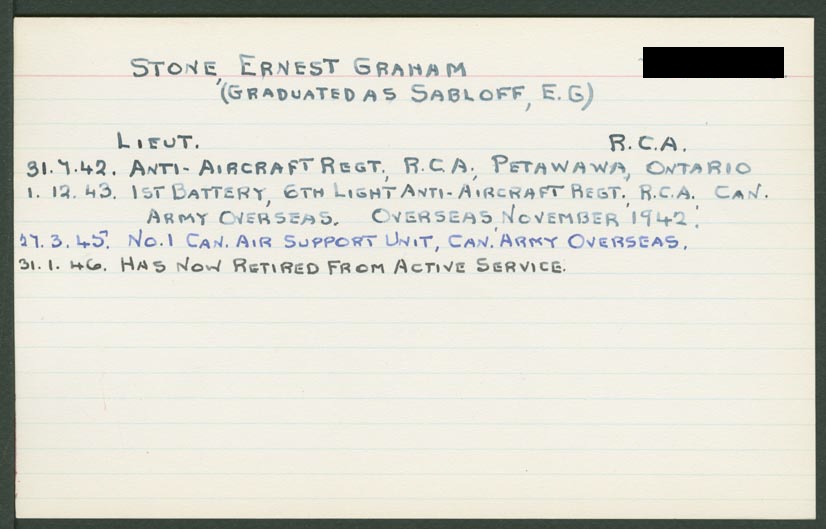 STONE, ERNEST GRAHAM
(GRADUATED AS SABLOFF, E.G)
LIEUT. R.C.A.
31.7.42. ANTI-AIRCRAFT REGT., R.C.A., PETAWAWA, ONTARIO
1.12.43. 1ST BATTERY, 6TH LIGHT ANTI-AIRCRAFT REGT., R.C.A. CAN.
ARMY OVERSEAS. OVERSEAS NOVEMBER 1942.
27.3.45. NO.1 CAN. AIR SUPPORT UNIT, CAN. ARMY OVERSEAS.
31.1.46. HAS NOW RETIRED FROM ACTIVE SERVICE.